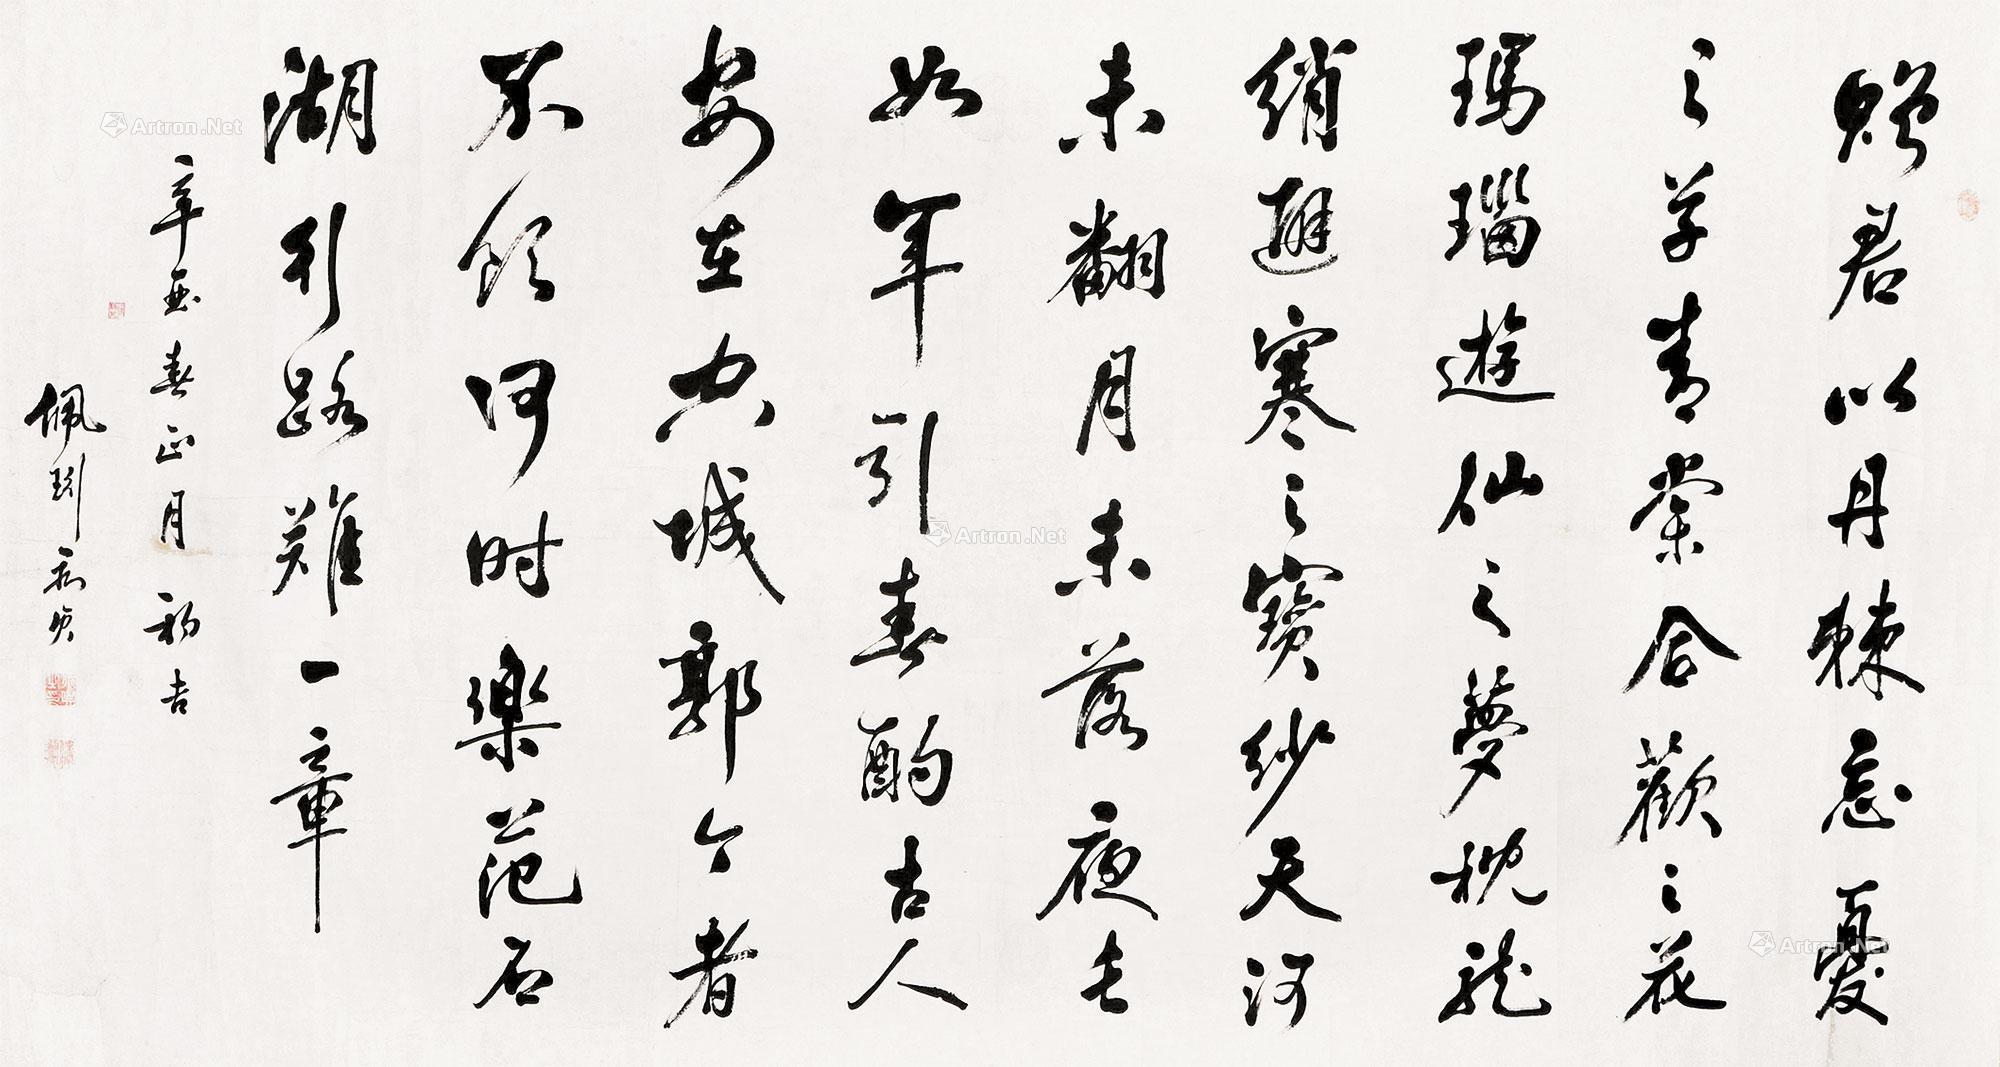 赠君以丹棘忘憂
之草青棠合歡之花
瑪瑙遊仙之夢枕龍
綃避寒之寶紗天河
未翻月未落夜長
如年引春酌古人
安在空城郭今者
不飲何時樂范石
湖行路難一章
辛亞春正月初吉
佩
Artron.Net
Artron.Net
Artron.Net